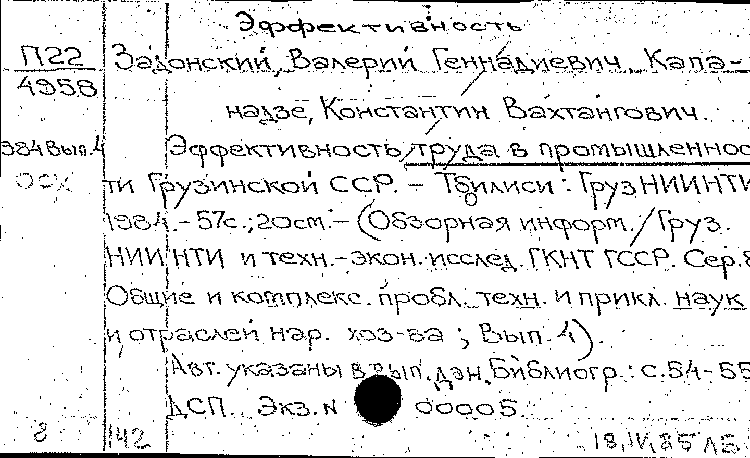 Эффективность
П22 Задонский, Валерий Геннадиевич, Капа-
4958
надзе, Константин Вахтангович.
984 Вып.4 Эффективность труда в промышленнос
ти Грузинской ССР. – Тбилиси: ГрузНИИНТИ
1984. – 57с.; 20см. – (Обзорная информ. / Груз.
НИИНТИ и техн.-экон. исслед. ГКНТ ГССР. Сер.
Общие и комплекс. пробл. техн. и прикл. наук
и отраслей нар. хоз-ва ; Вып. 4).
Авт. указаны в вып. дан. Библиогр.: с.54-55
ДСП. Экз. N 00005.
8 142 18.IV.85